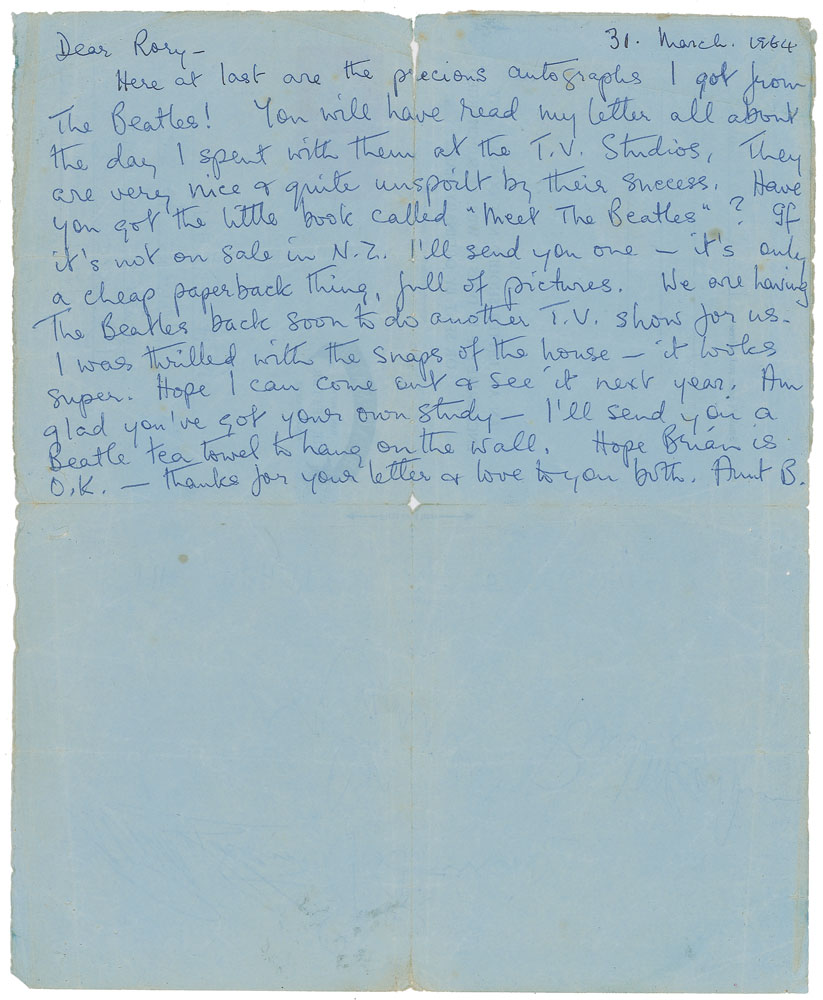 31. March. 1964
Dear Rory -
Here at last are the precious autographs I got from
The Beatles! You will have read my letter all about
the day I spent with them at the T.V. Studios, They
are very nice & quite unspoilt by their success. Have
you got the little book called "Meet The Beatles"? If
it's not on sale in N.Z. I'll send you one - it's only
a cheap paperback thing, full of pictures. We are having
The Beatles back soon to do another T.V. show for us.
I was thrilled with the snaps of the house - it looks
super. Hope I can come out & see it next year. Am
glad you've got your own study - I'll send you a
Beatle tea towel to hang on the wall. Hope Brian is
O.K. - thanks for your letter & love to you both. Aunt B.